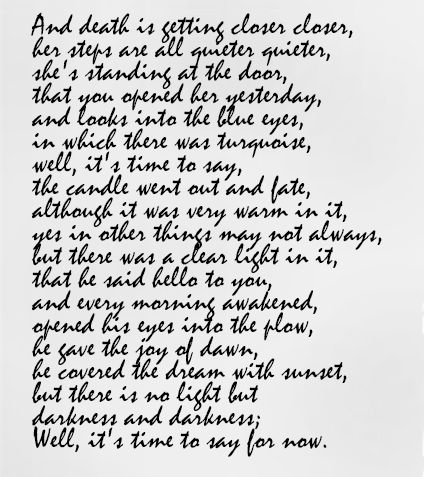 And death is getting closer closer,
her steps are all quieter quieter,
she's standing at the door,
that you opened her yesterday,
and looks into the blue eyes,
in which there was turquoise,
well, it's time to say,
the candle went out and fate,
although it was very warm in it,
yes in other things may not always,
but there was a clear light in it,
that he said hello to you,
and every morning awakened,
opened his eyes into the plow,
he gave the joy of dawn,
he covered the dream with sunset,
but there is no light but
darkness and darkness;
Well, it's time to say for now.